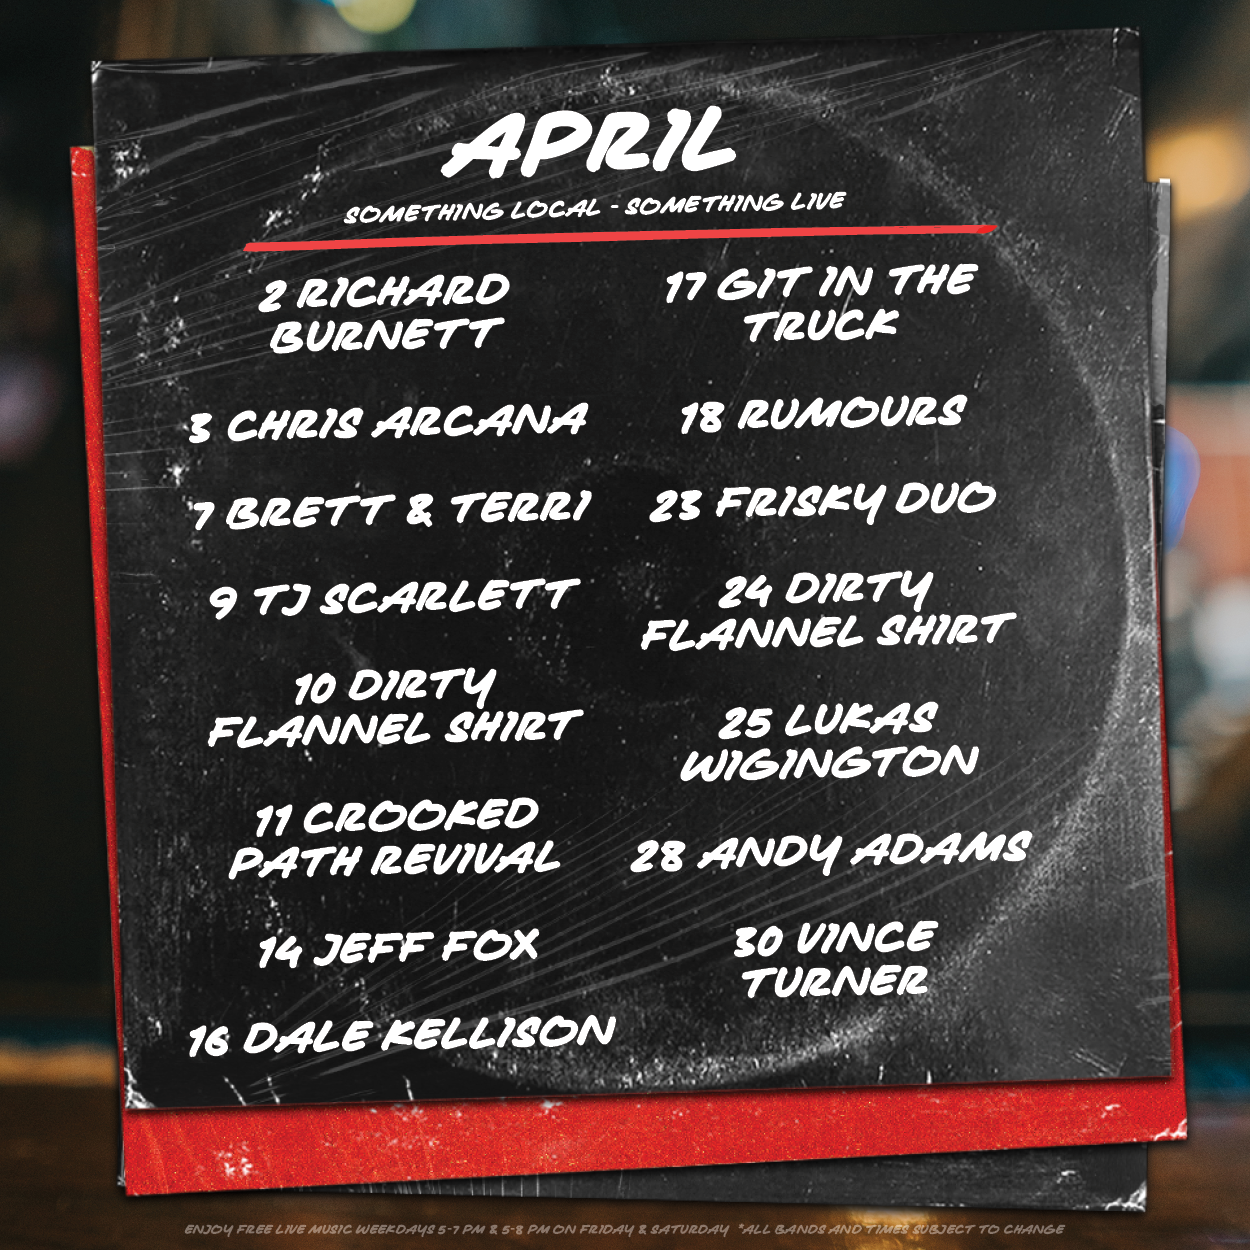 APRIL
SOMETHING LOCAL - SOMETHING LIVE
2 RICHARD
BURNETT
3 CHRIS ARCANA
7 BRETT & TERRI
9 TJ SCARLETT
10 DIRTY
FLANNEL SHIRT
11 CROOKED
PATH REVIVAL
14 JEFF FOX
16 DALE KELLISON
17 GIT IN THE
TRUCK
18 RUMOURS
23 FRISKY DUO
24 DIRTY
FLANNEL SHIRT
25 LUKAS
WIGINGTON
28 ANDY ADAMS
30 VINCE
TURNER
ENJOY FREE LIVE MUSIC WEEKDAYS 5-7 PM & 5-8 PM ON FRIDAY & SATURDAY *ALL BANDS AND TIMES SUBJECT TO CHANGE